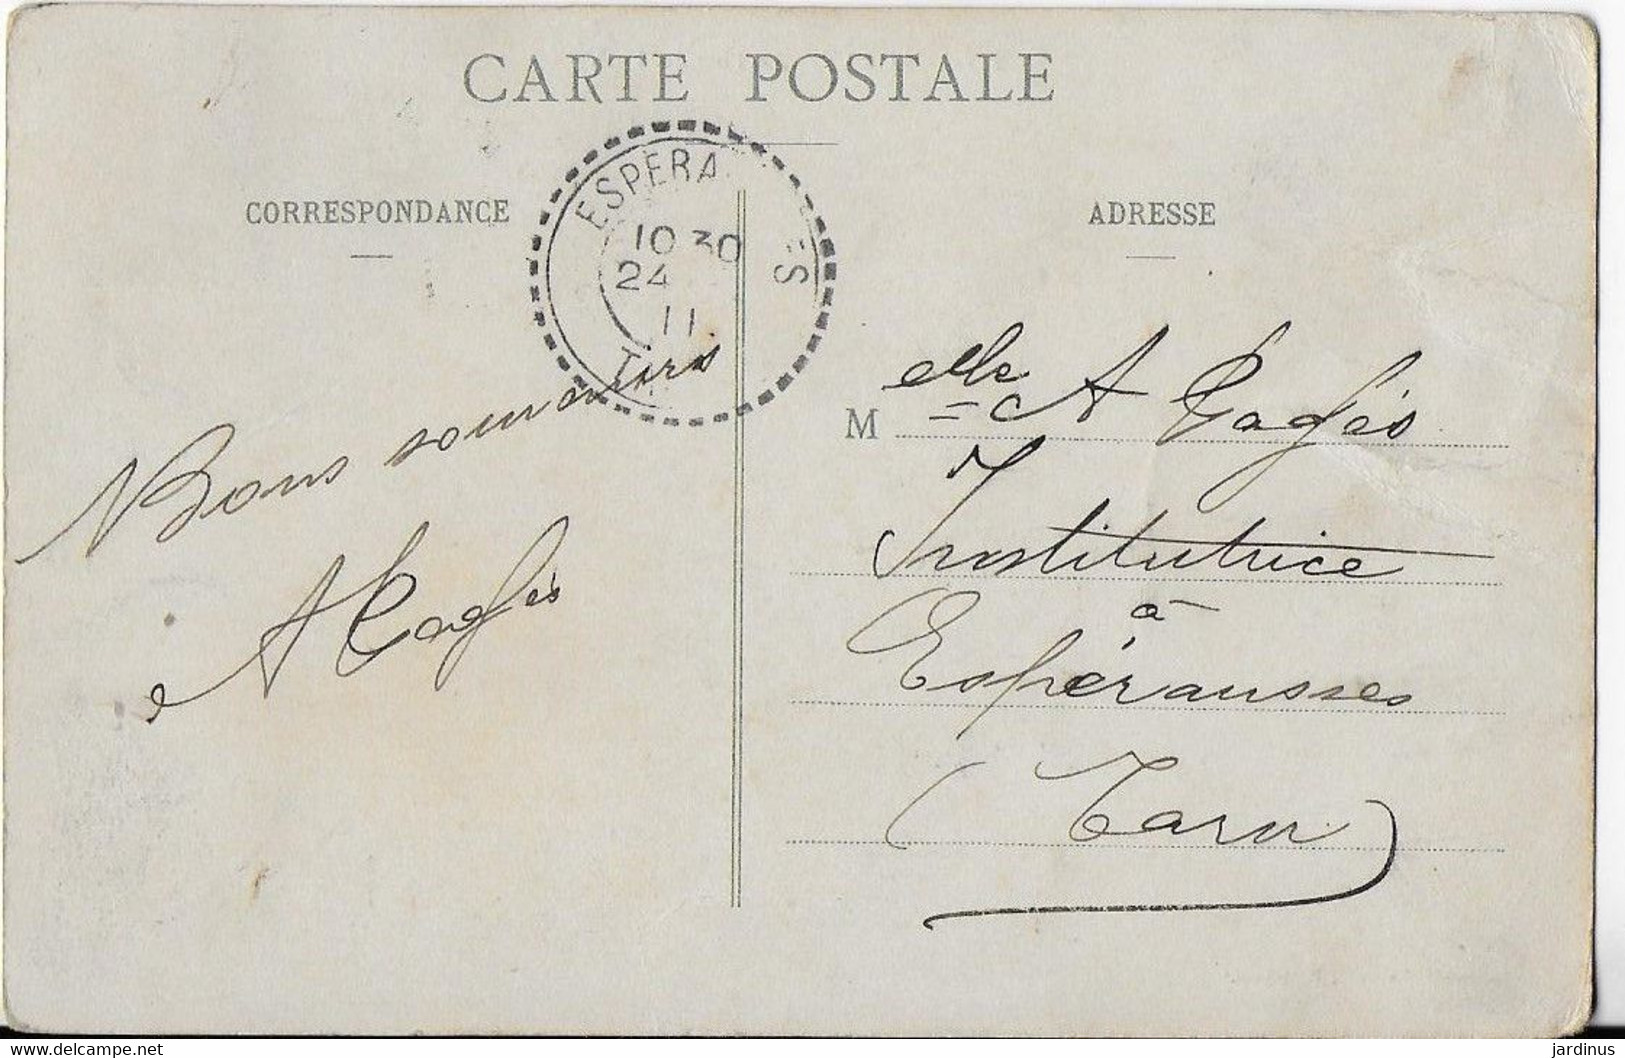 CARTE POSTALE
CORRESPONDANCE
ADRESSE
ESPERA ES
10 30
24
11
TARN
Bons souvenirs
A Pagès
M elle A Pagès
Institutrice
à
Espérausses
(Tarn)
www.delcampe.net
jardinus